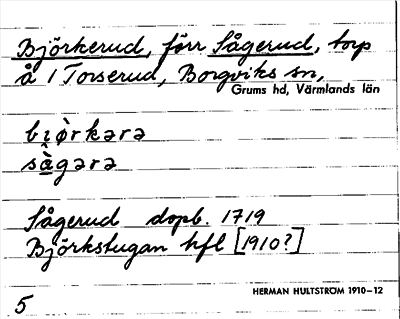 Björkerud, förr Sågerud, torp
å 1 Torserud, Borgviks sn,
Grums hd, Värmlands län
bi̯ə̀rkərə
sågərə
Sågerud dopb. 1719
Björkstugan hfl [1910?]
HERMAN HULTSTRÖM 1910–12
5